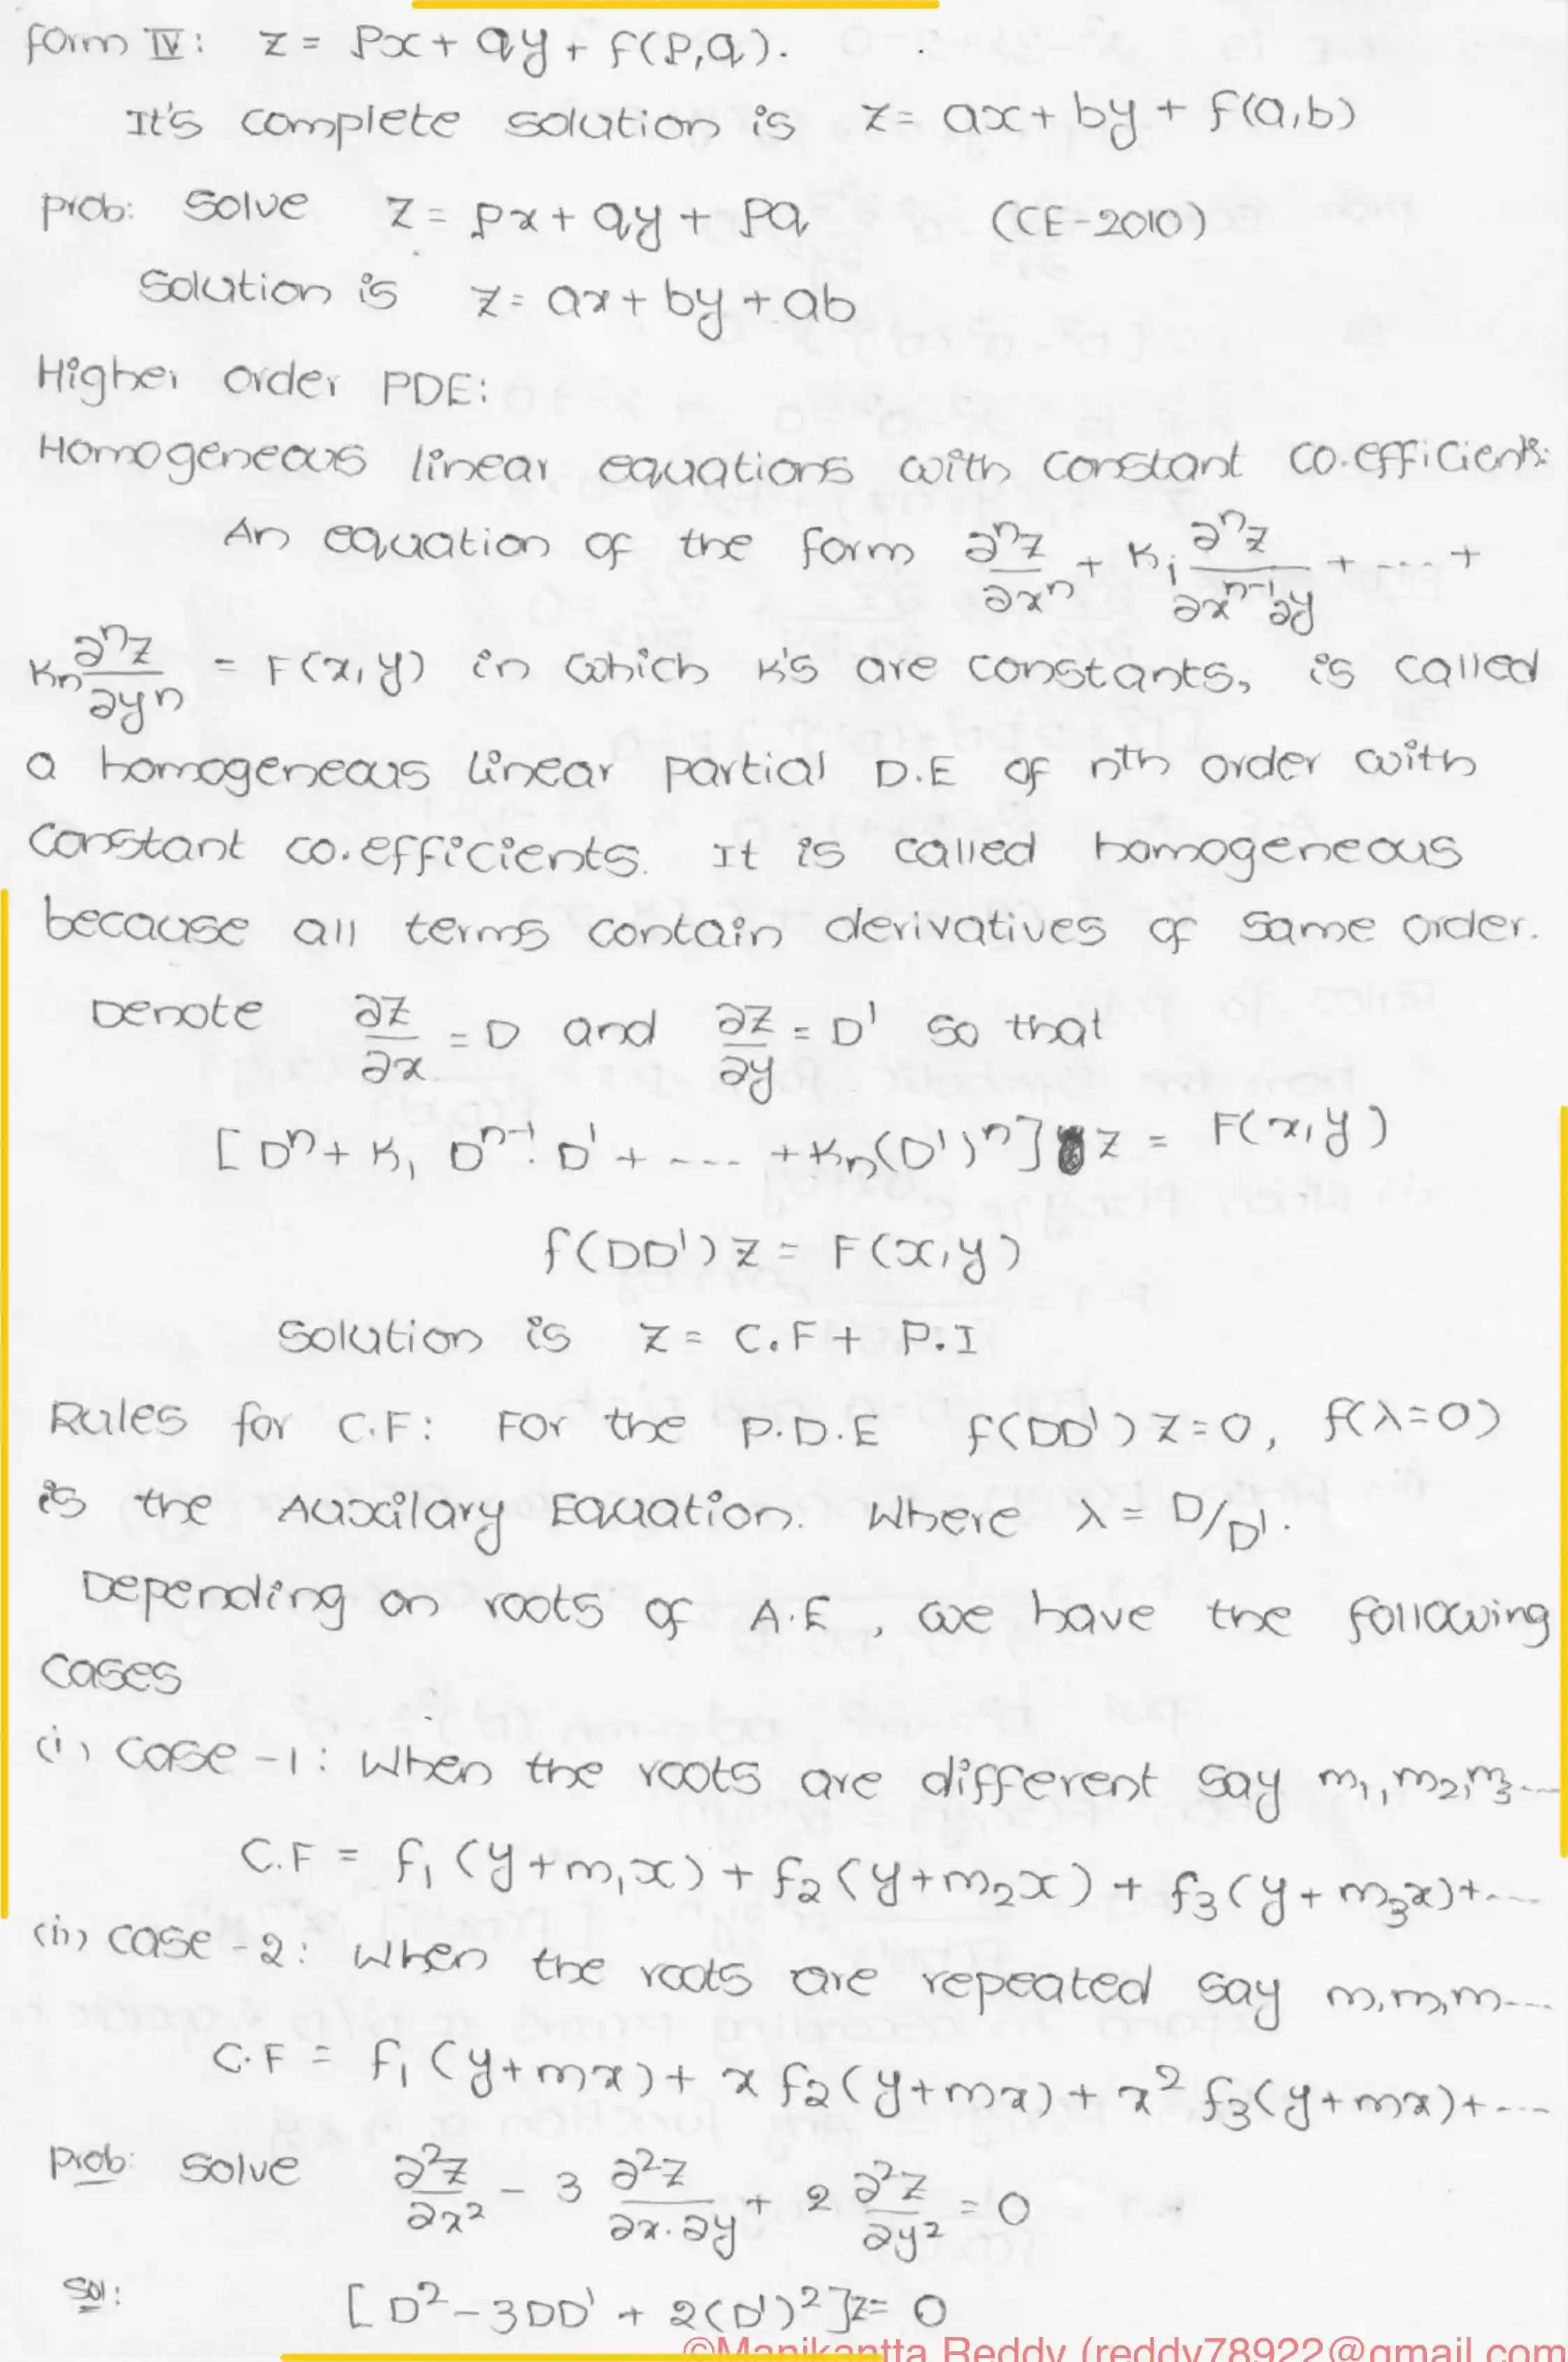 form IV: z = px + qy + f(p,q).
It's complete solution is z = ax + by + f(a,b)
prob: Solve z = px + qy + pq (CE-2010)
Solution is z = ax + by + ab
Higher order PDE:
Homogeneous linear equations with constant co.efficients:
An equation of the form ∂ⁿz/∂xⁿ + K₁ ∂ⁿz/∂xⁿ⁻¹∂y + .... +
Kₙ ∂ⁿz/∂yⁿ = F(x,y) in which K's are constants, is called
a homogeneous linear partial D.E of nth order with
constant co.efficients. It is called homogeneous
because all terms contain derivatives of same order.
Denote ∂z/∂x = D and ∂z/∂y = D' so that
[Dⁿ + K₁ Dⁿ⁻¹. D' + .... + Kₙ(D')ⁿ] z = F(x,y)
f(DD') z = F(x,y)
Solution is z = C.F + P.I
Rules for C.F: For the P.D.E f(DD') z = 0, f(λ=0)
is the Auxilary Equation. Where λ = D/D'.
Depending on roots of A.E, we have the following
cases
(i) case -1: When the roots are different say m₁, m₂, m₃...
C.F = f₁(y+m₁x) + f₂(y+m₂x) + f₃(y+m₃x)+....
(ii) case -2: When the roots are repeated say m,m,m...
C.F = f₁(y+mx) + x f₂(y+mx) + x² f₃(y+mx)+....
Prob: Solve ∂²z/∂x² - 3 ∂²z/∂x.∂y + 2 ∂²z/∂y² = 0
Sol: [D² - 3DD' + 2(D')²]z = 0
©Manikantta Reddy (reddy78922@gmail.com